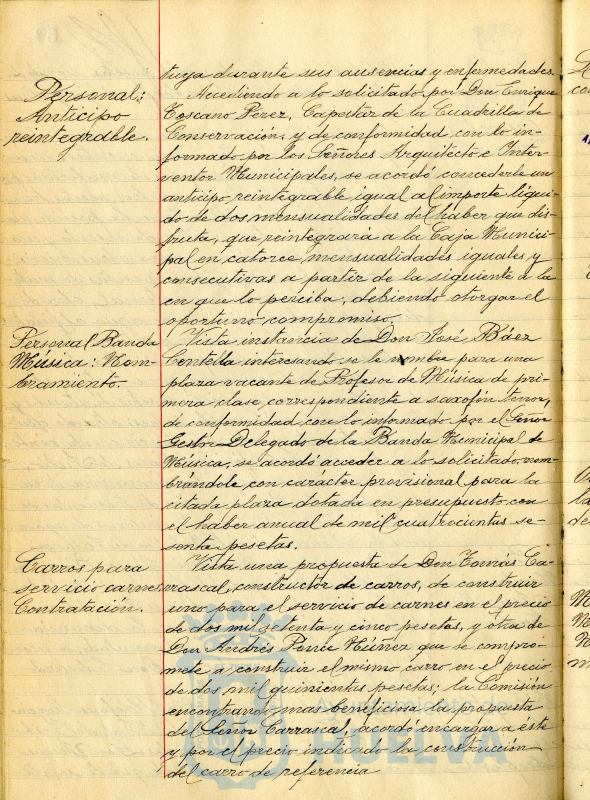 tuya durante sus ausencias y enfermedades.
Personal:
Anticipo
reintegrable.
Accediendo a lo solicitado por Don Enrique
Toscano Perez, Capataz de la Cuadrilla de
Conservación, y de conformidad con lo in-
formado por los Señores Arquitecto e Inter-
ventor Municipales, se acordó concederle un
anticipo reintegrable igual al importe líqui-
do de dos mensualidades del haber que dis-
fruta, que reintegrará a la Caja Munici-
pal en catorce mensualidades iguales y
consecutivas a partir de la siguiente a la
en que lo perciba, debiendo otorgar el
oportuno compromiso.
Personal Banda
Música: Nom-
bramiento.
Vista instancia de Don José Báez
Centella interesando se le nombre para una
plaza vacante de Profesor de Música de pri-
mera clase correspondiente a saxofón tenor,
de conformidad con lo informado por el Señor
Gestor Delegado de la Banda Municipal de
Música, se acordó acceder a lo solicitado nom-
brándole con carácter provisional para la
citada plaza dotada en presupuesto con
el haber anual de mil cuatrocientas se-
senta pesetas.
Carros para
servicio carnes
Contratación.
Vista una propuesta de Don Tomás Ca-
rrascal, constructor de carros, de construir
uno para el servicio de carnes en el precio
de dos mil setenta y cinco pesetas, y otra de
Don Andrés Ponce Núñez que se compro-
mete a construir el mismo carro en el precio
de dos mil quinientas pesetas; la Comisión
encontrando mas beneficiosa la propuesta
del Señor Carrascal, acordó encargar a éste
y por el precio indicado la construcción
del carro de referencia
HUELVA